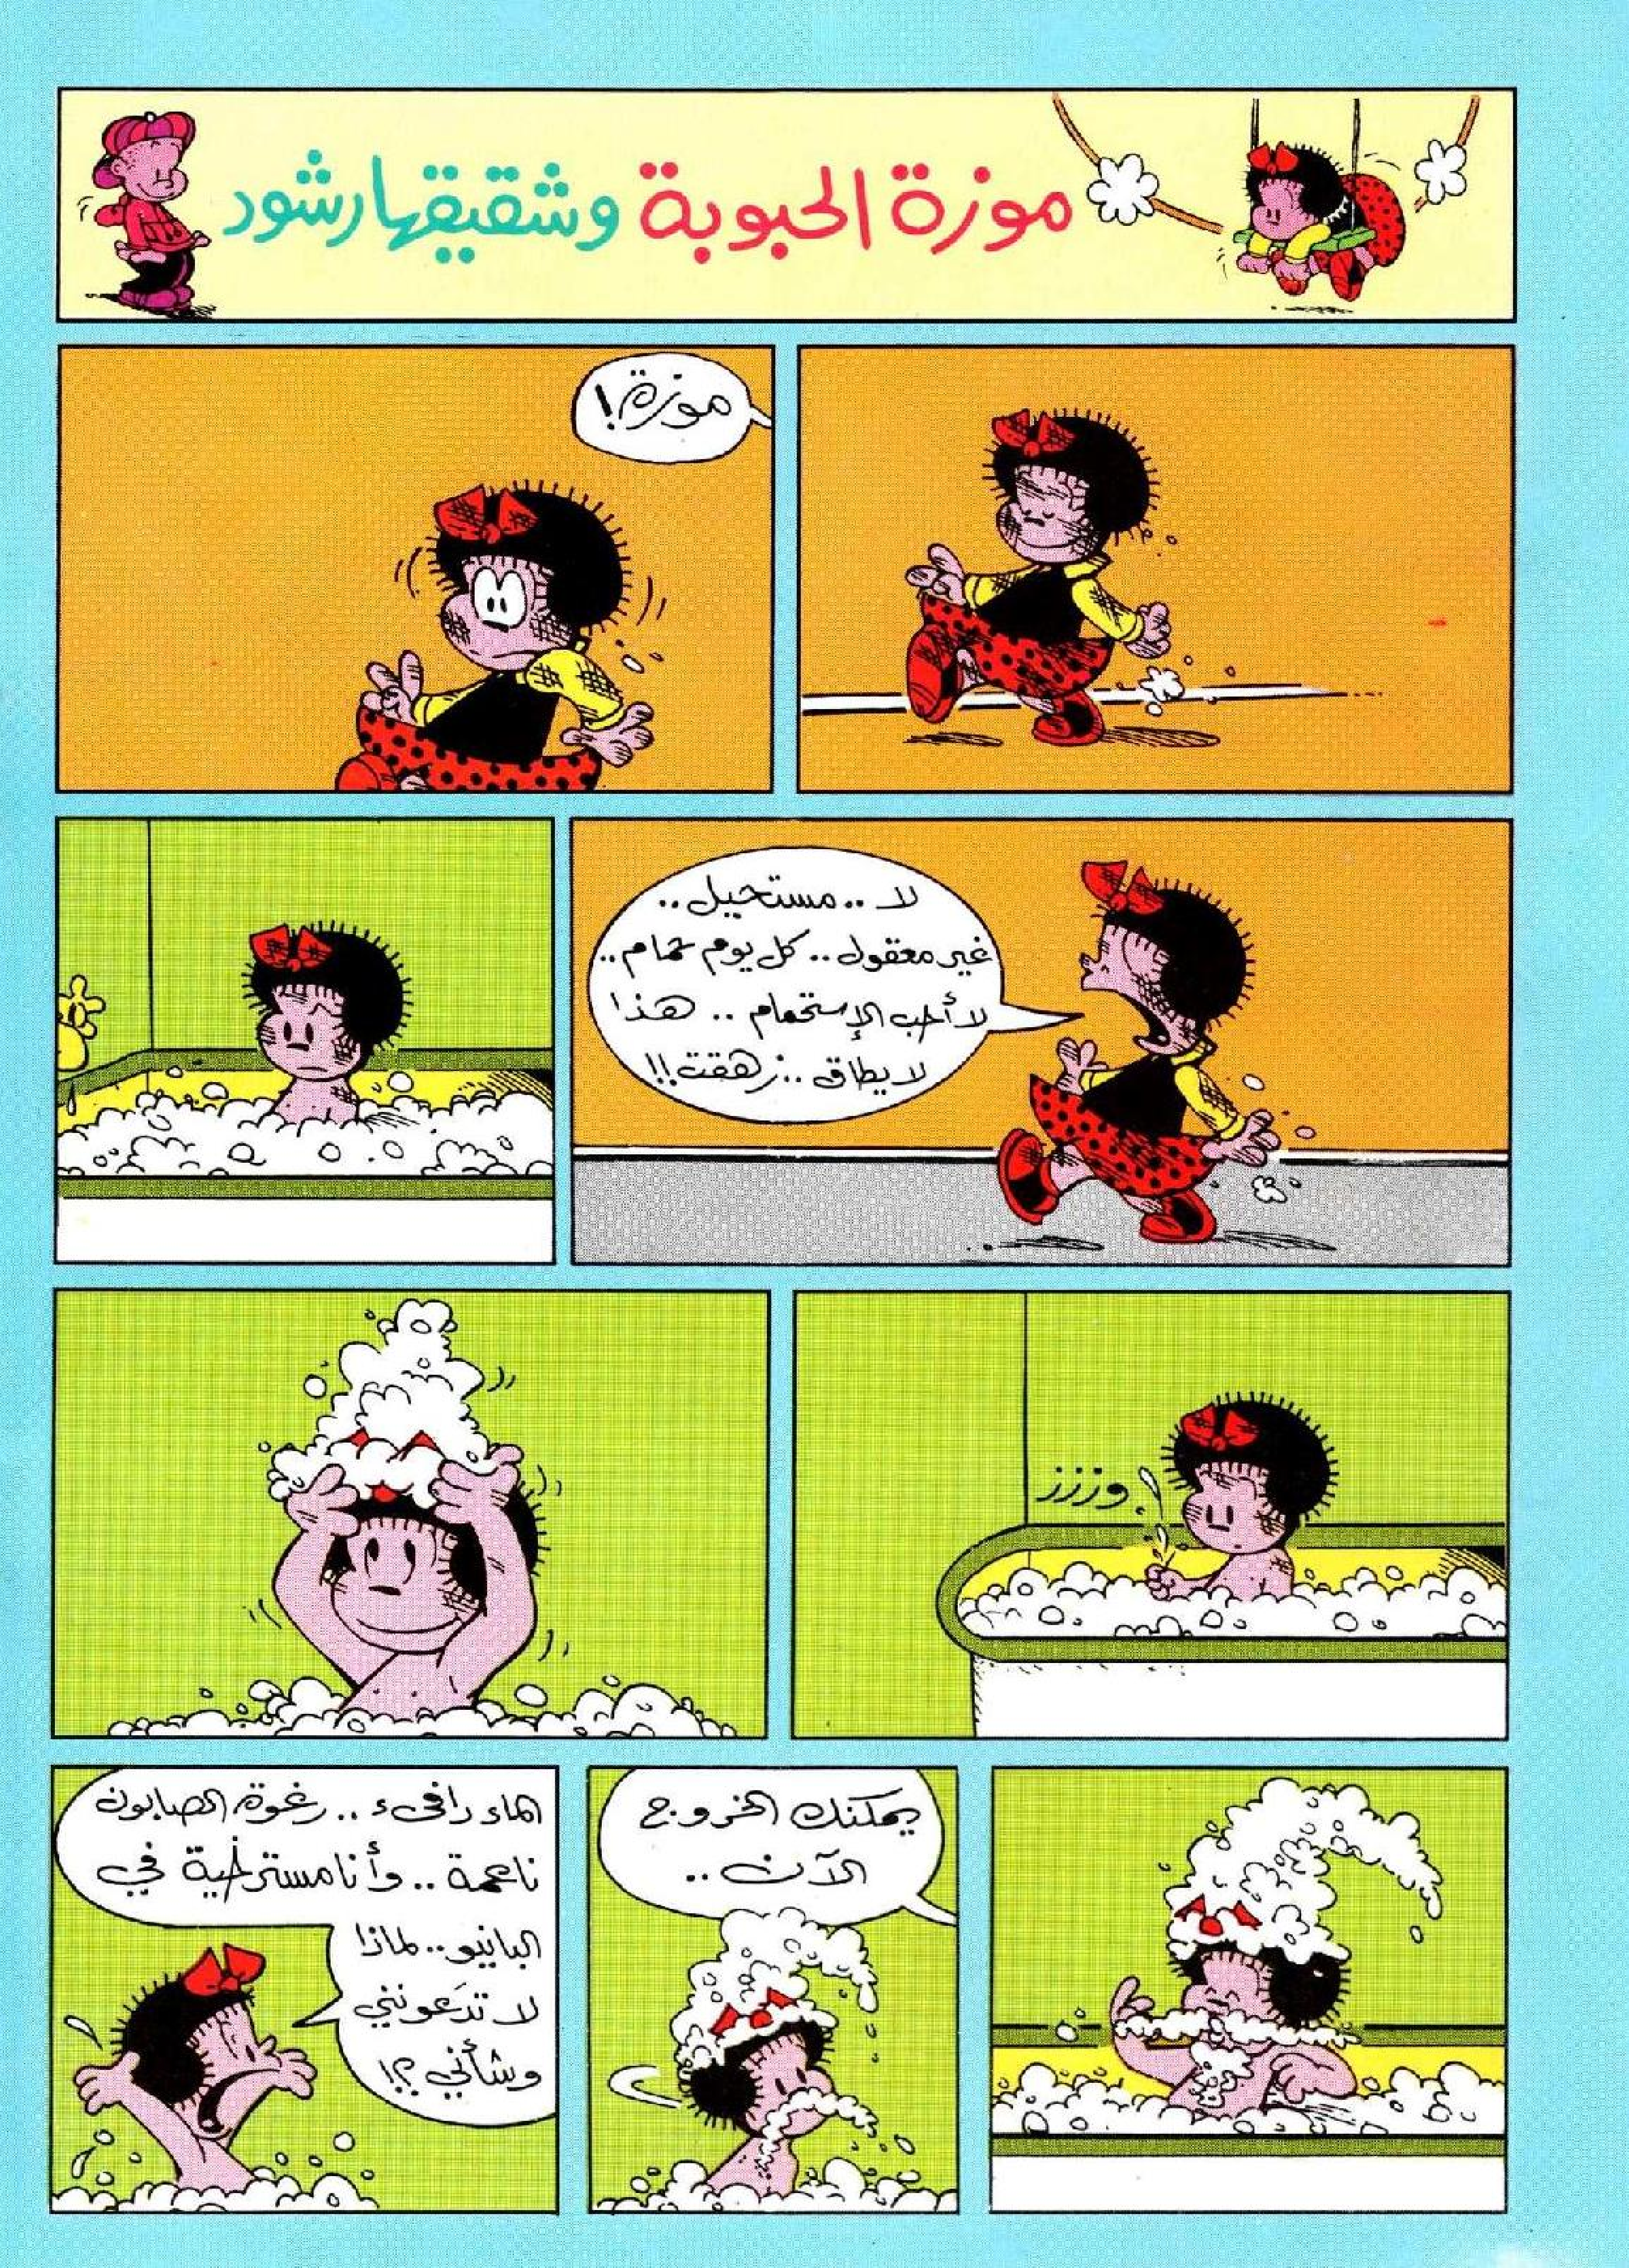 موزة الحبوبة وشقيقها رشود
موزة!
لا .. مستحيل ..
غير معقول .. كل يوم حمام ..
لا أحب الإستحمام .. هذا
لا يطاق .. زهقت!!
وزززز
يمكنك الخروج
الآن ..
الماء دافىء .. رغوة الصابون
ناعمة .. وأنا مسترخية في
البانيو .. لماذا
لا تدَعونني
وشأني؟!